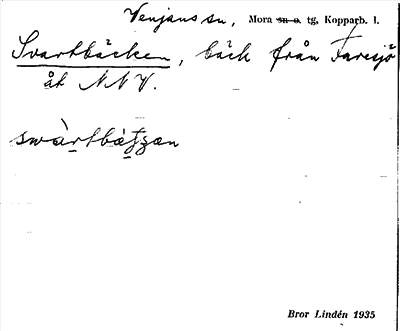 Venjans sn, Mora sn o. tg, Kopparb. l.
Svartbäcken, bäck från Faresjö
åt NNV.
Bror Lindén 1935